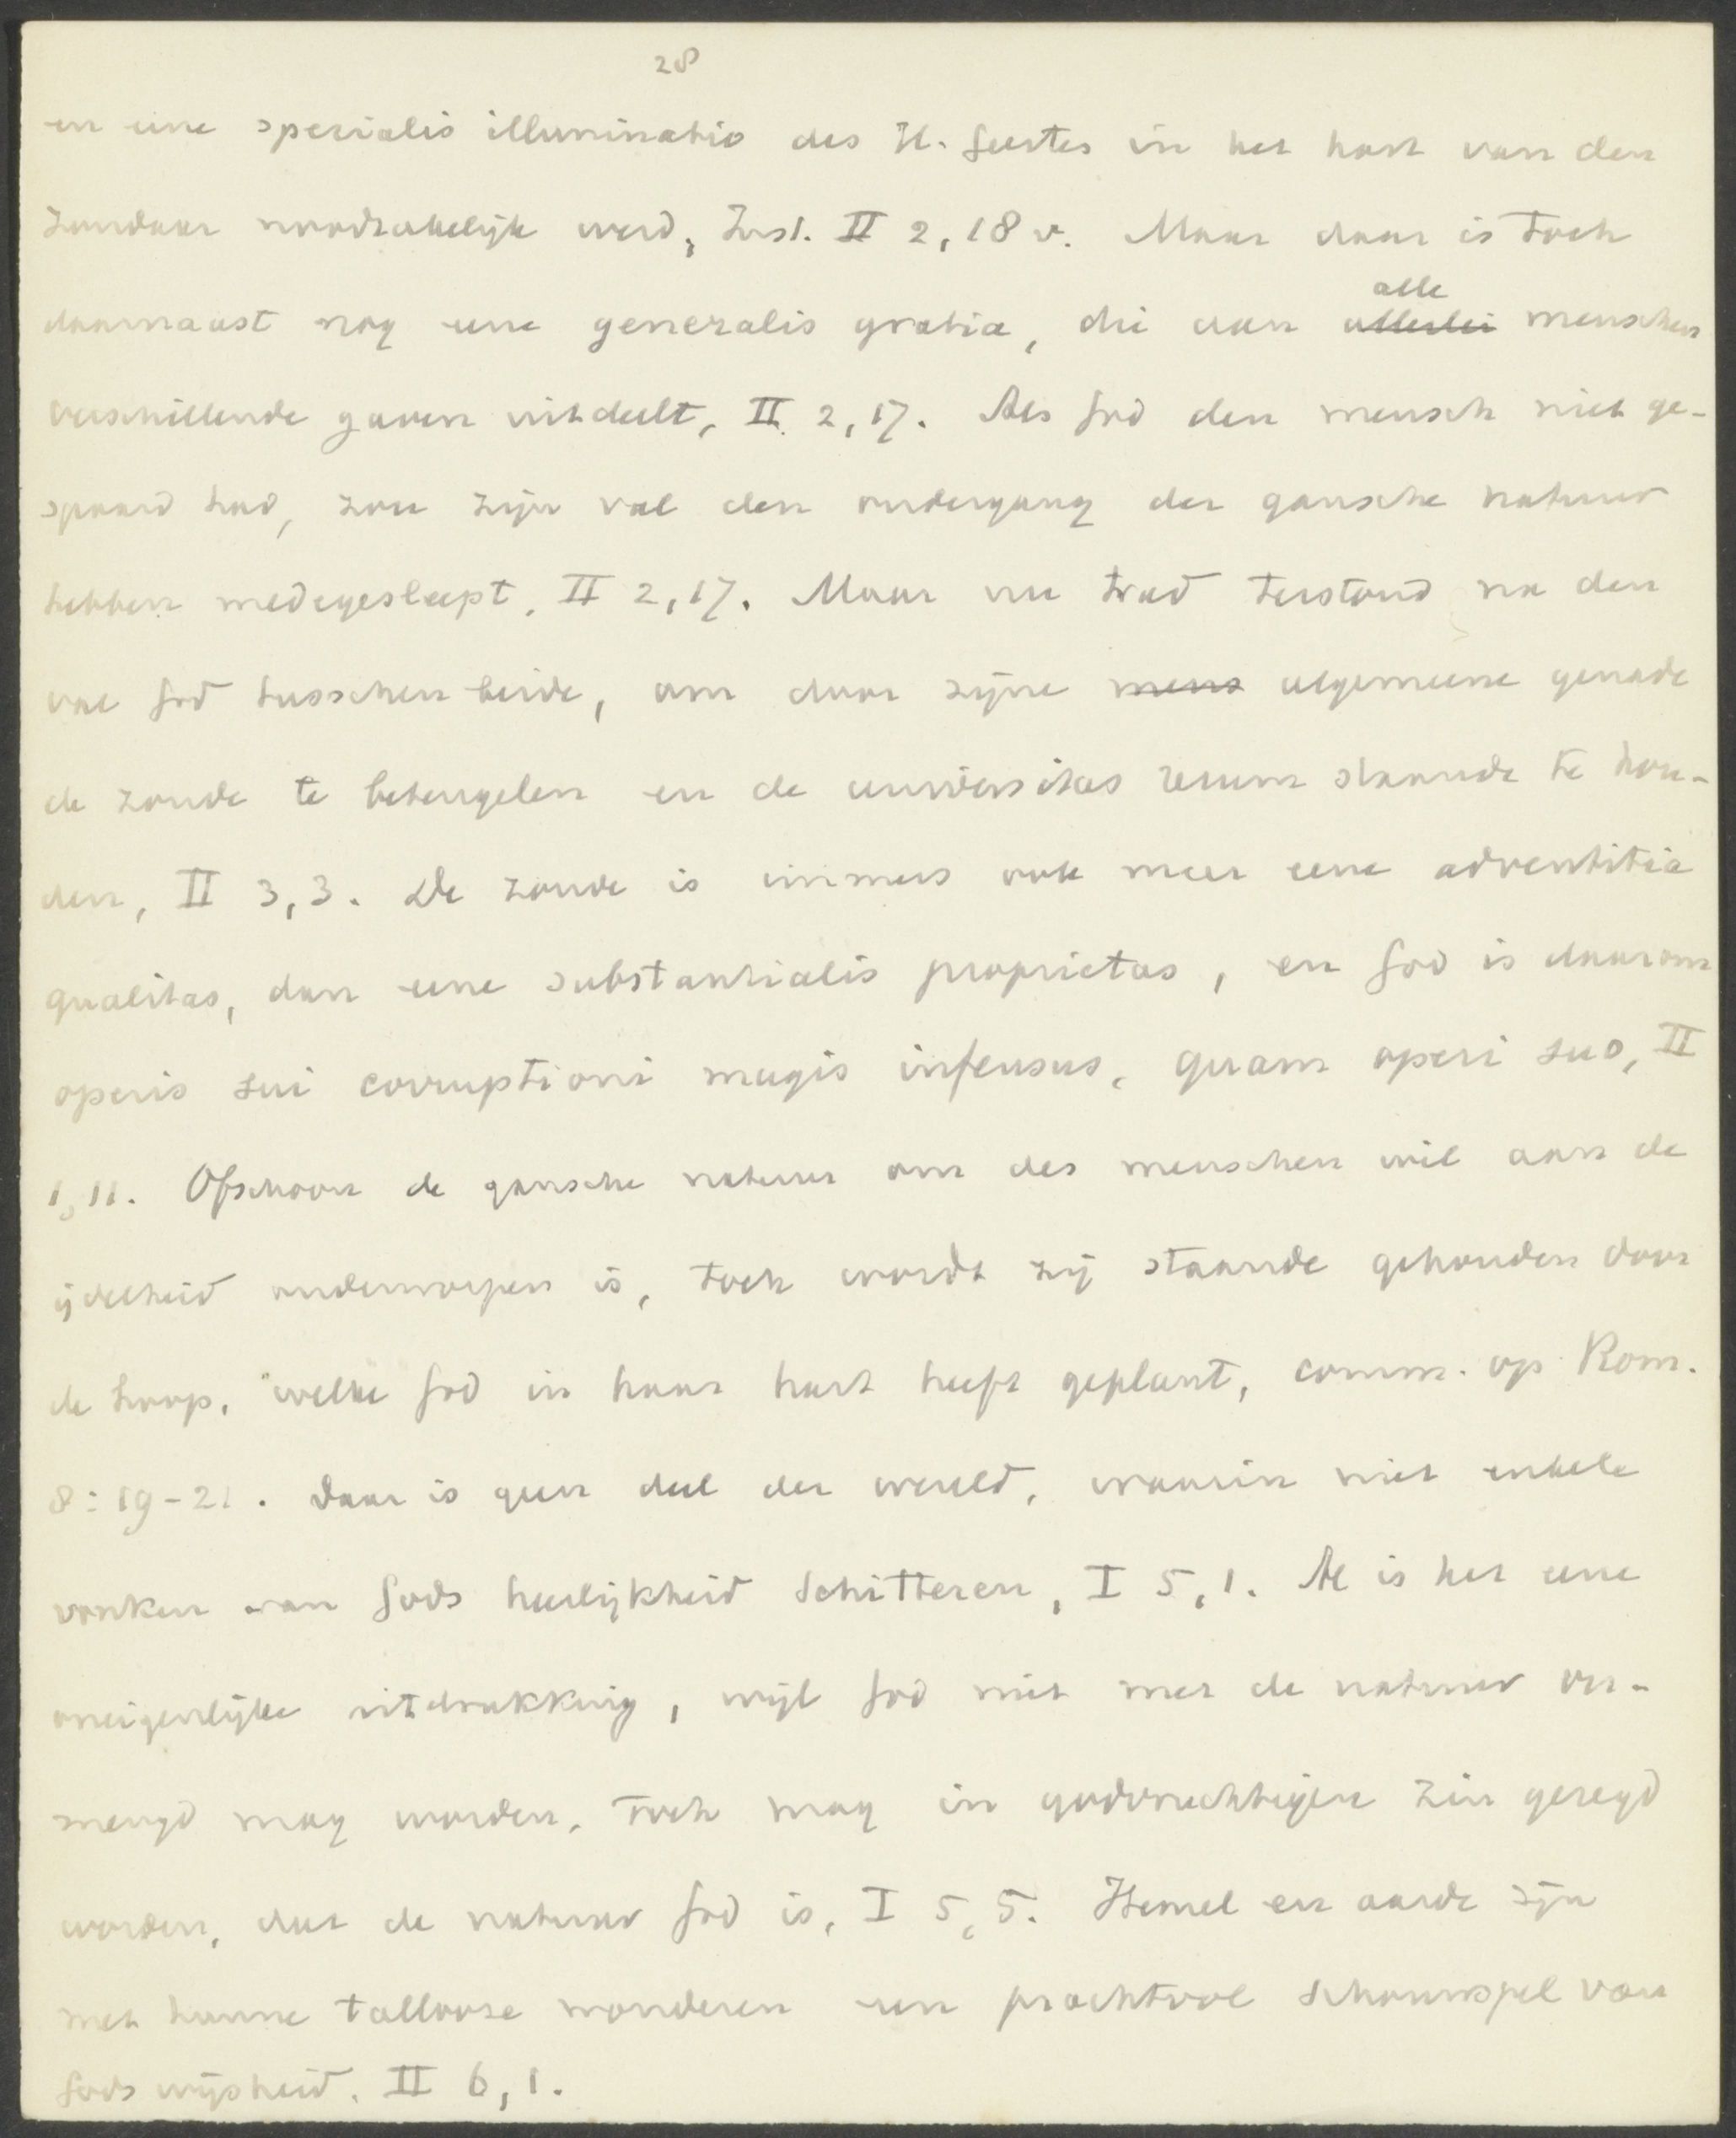 28
en eene specialis illuminatio des H. Geestes in het hart van den
zondaar noodzakelijk werd, Inst. II 2, 18 v. Maar daar is toch
daarnaast nog eene generalis gratia, die aan allerlei alle menschen
verschillende gaven uitdeelt, II 2, 17. Als God den mensch niet ge-
spaard had, zou zijn val den ondergang der gansche natuur
hebben medegesleept, II 2, 17. Maar nu trad terstond na den
val God tusschen beide, om door zijne mens algemeene genade
de zonde te beteugelen en de universitas rerum staande te hou-
den, II 3, 3. De zonde is immers ook meer eene adventitia
qualitas, dan eene substantialis proprietas, en God is daarom
operis sui corruptioni magis infensus, quam operi suo, II
1, 11. Ofschoon de gansche natuur om des menschen wil aan de
ijdelheid onderworpen is, toch wordt zij staande gehouden door
de hoop, welke God in haar hart heeft geplant, comm. op Rom.
8:19-21. Daar is geen deel der wereld, waarin niet enkele
vonken van Gods heerlijkheid schitteren, I 5, 1. Al is het eene
oneigenlijke uitdrukking, wijl God niet met de natuur ver-
mengd mag worden, toch mag in godvruchtigen zin gezegd
worden, dat de natuur God is, I 5, 5. Hemel en aarde zijn
met hunne tallooze wonderen een prachtvol schouwspel van
Gods wijsheid. II 6, 1.